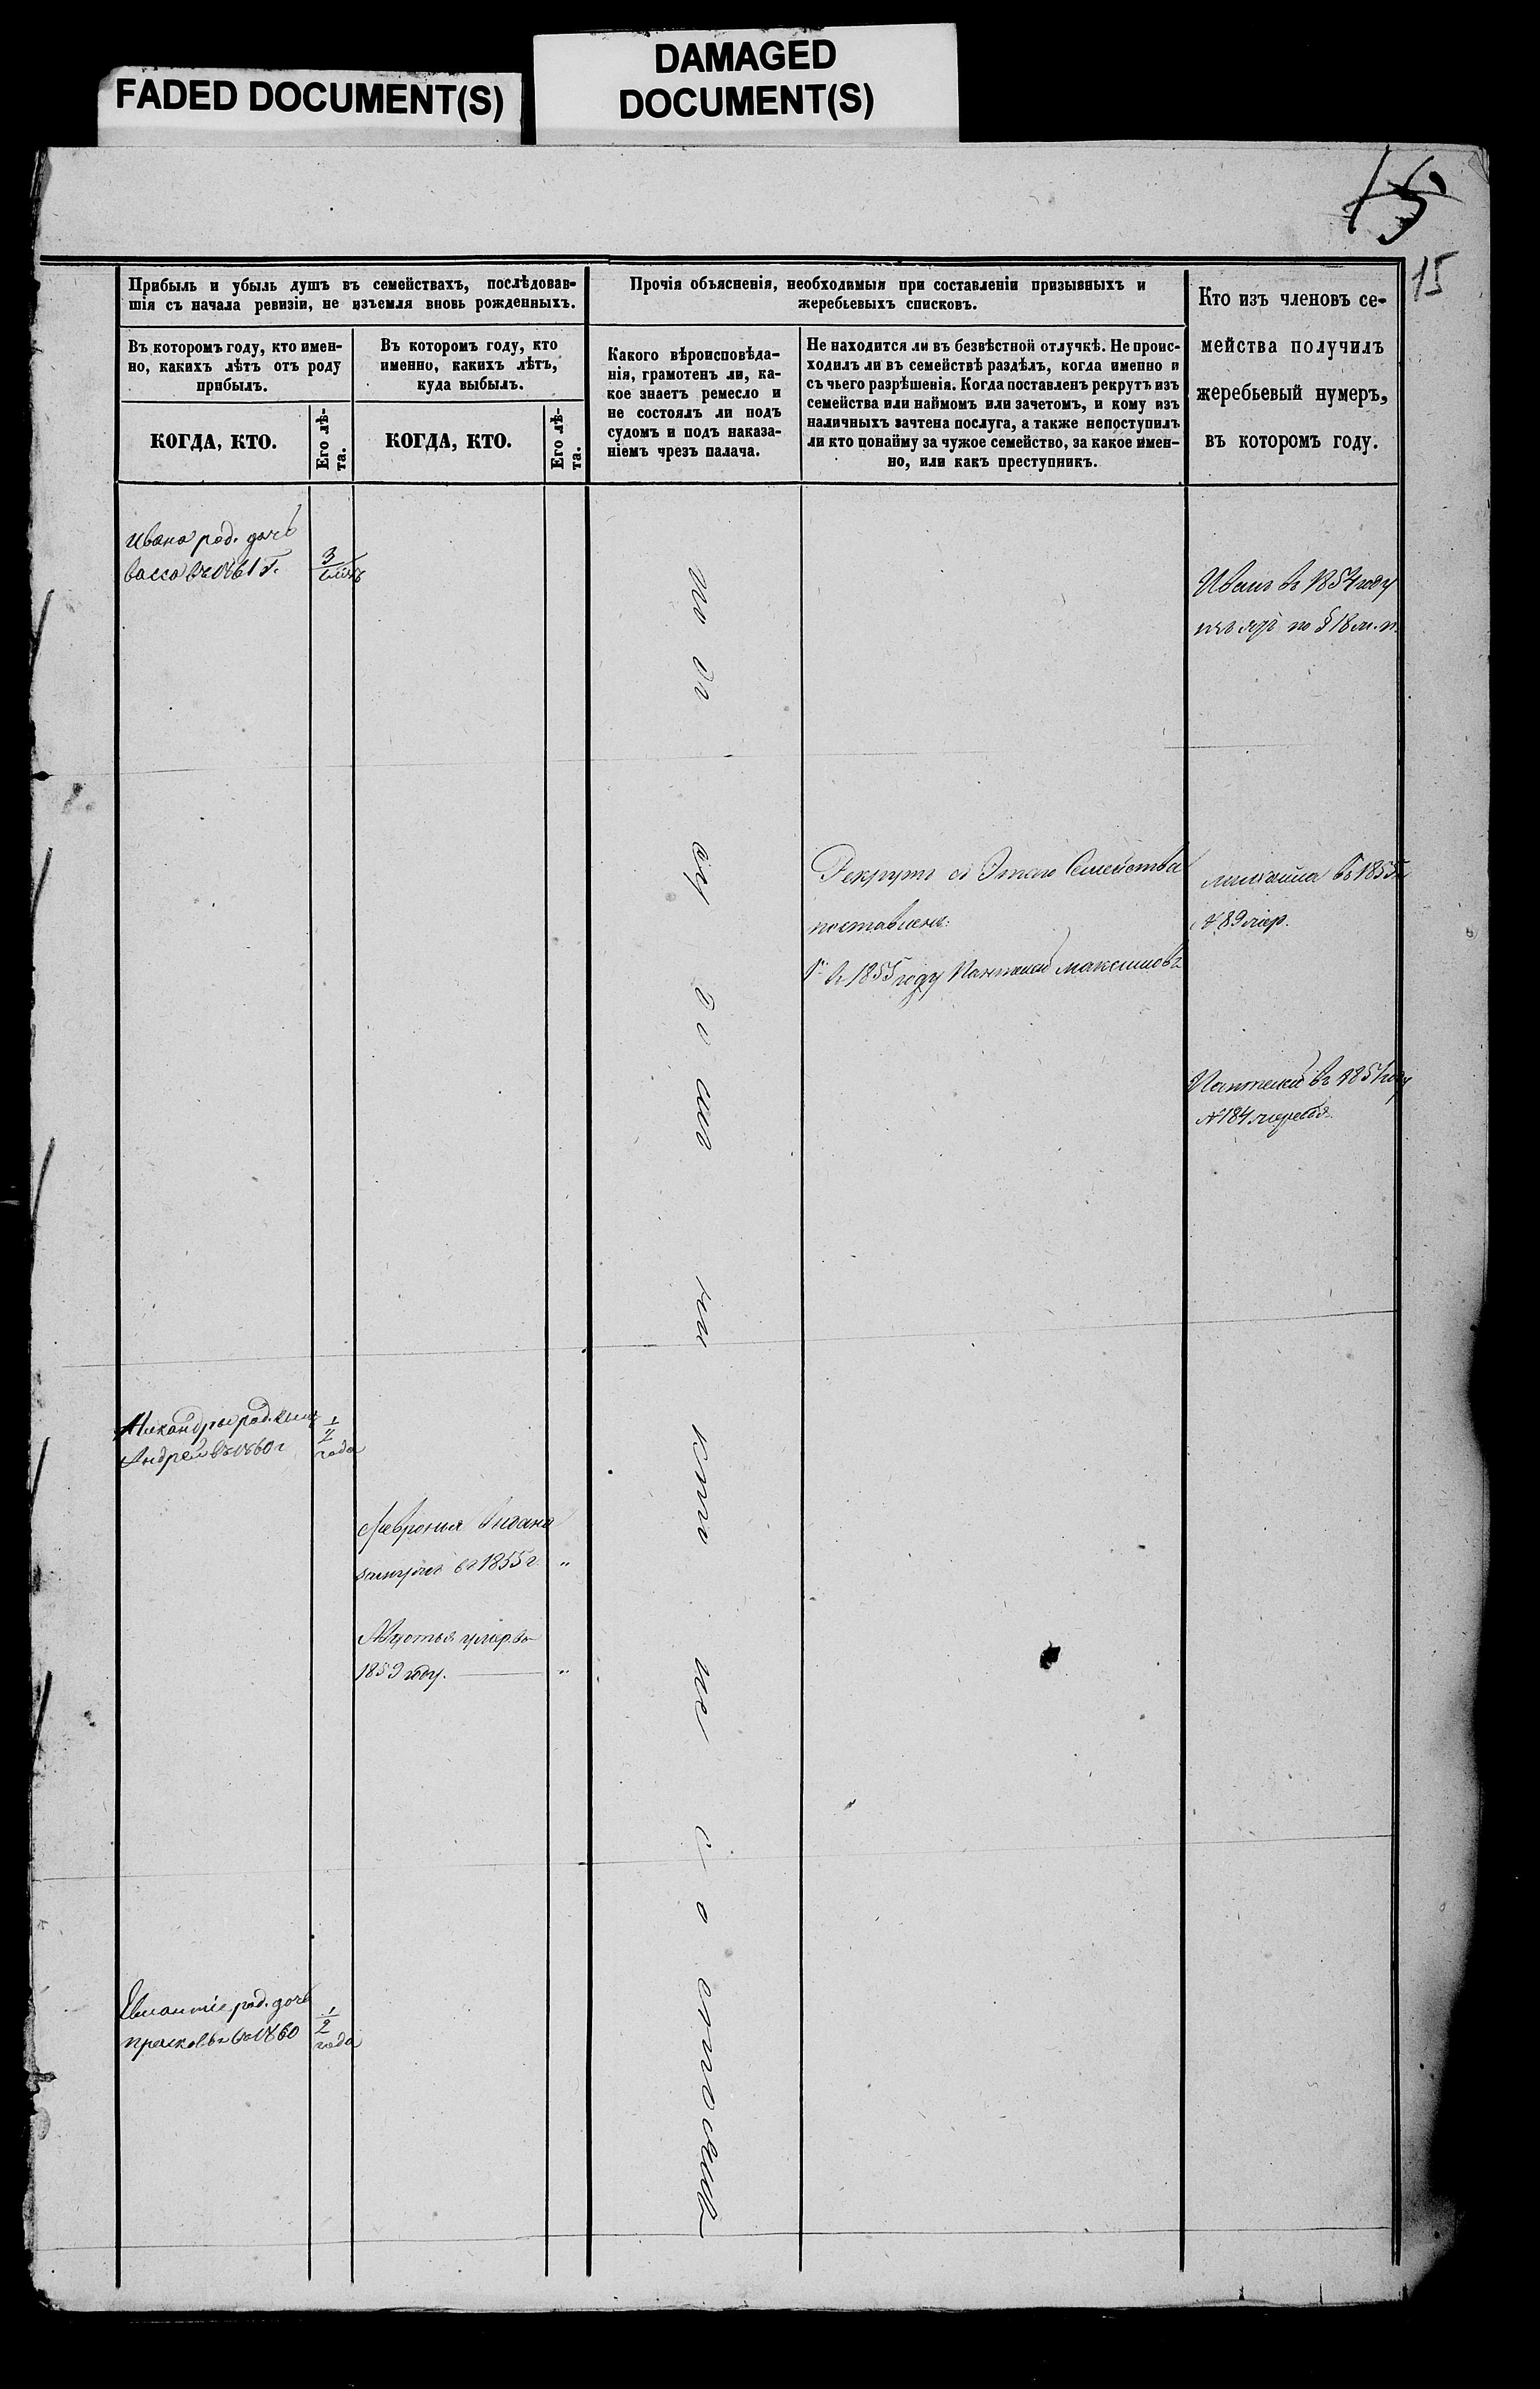 FADED DOCUMENT(S)
DAMAGED
DOCUMENT(S)
15
15
Прибыль и убыль душъ въ семействахъ, послѣдовав-
шія съ начала ревизіи, не изъемля вновь рожденныхъ.
Прочія объясненія, необходимыя при составленіи призывныхъ и
жеребьевыхъ списковъ.
Кто изъ членовъ се-
мейства получилъ
жеребьевый нумеръ,
въ которомъ году.
Въ которомъ году, кто имен-
но, какихъ лѣтъ отъ роду
прибылъ.
Въ которомъ году, кто
именно, какихъ лѣтъ,
куда выбылъ.
Какого вѣроисповѣда-
нія, грамотенъ ли, ка-
кое знаетъ ремесло и
не состоялъ ли подъ
судомъ и подъ наказа-
ніемъ чрезъ палача.
Не находится ли въ безвѣстной отлучкѣ. Не проис-
ходилъ ли въ семействѣ раздѣлъ, когда именно и
съ чьего разрѣшенія. Когда поставленъ рекрутъ изъ
семейства или наймомъ или зачетомъ, и кому изъ
наличныхъ зачтена послуга, а также непоступилъ
ли кто понайму за чужое семейство, за какое имен-
но, или какъ преступникъ.
КОГДА, КТО.
Его лѣ-
та.
КОГДА, КТО.
Его лѣ-
та.
Ивана род. дочь
васса въ 1861 г.
3
Иванъ въ 1854 году
по § 18 м. п.
подъ судомъ ни кто не состоитъ
Рекрутъ съ Этаго Семейства
поставленъ:
1й въ 1855 году Пантелей Максимовъ
въ 1855 г
№ 89 жер.
Пантелей въ 1851 году
№ 184 жеребья
Никандры род. сынъ
Андрей въ 1860 г
1/2
года
Февронья выдана
замужъ въ 1855 г. "
умер. въ
1859 году. "
род. дочь
прасковья въ 1860
1/2
года